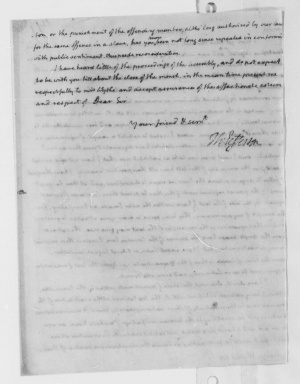 tion, or the punishment of the offending member, altho long authorised by our law
for the same offence in a slave, has you know not long since repealed in conformity
with public sentiment.
I have heard little of the proceedings of the assembly, and do not expect
to be with you till about the close of the month. in the mean time present me
respectfully to mrs and accept assurances of the affectionate esteem
and respect of Dear Sir
Your friend & servt
Th: Jefferson